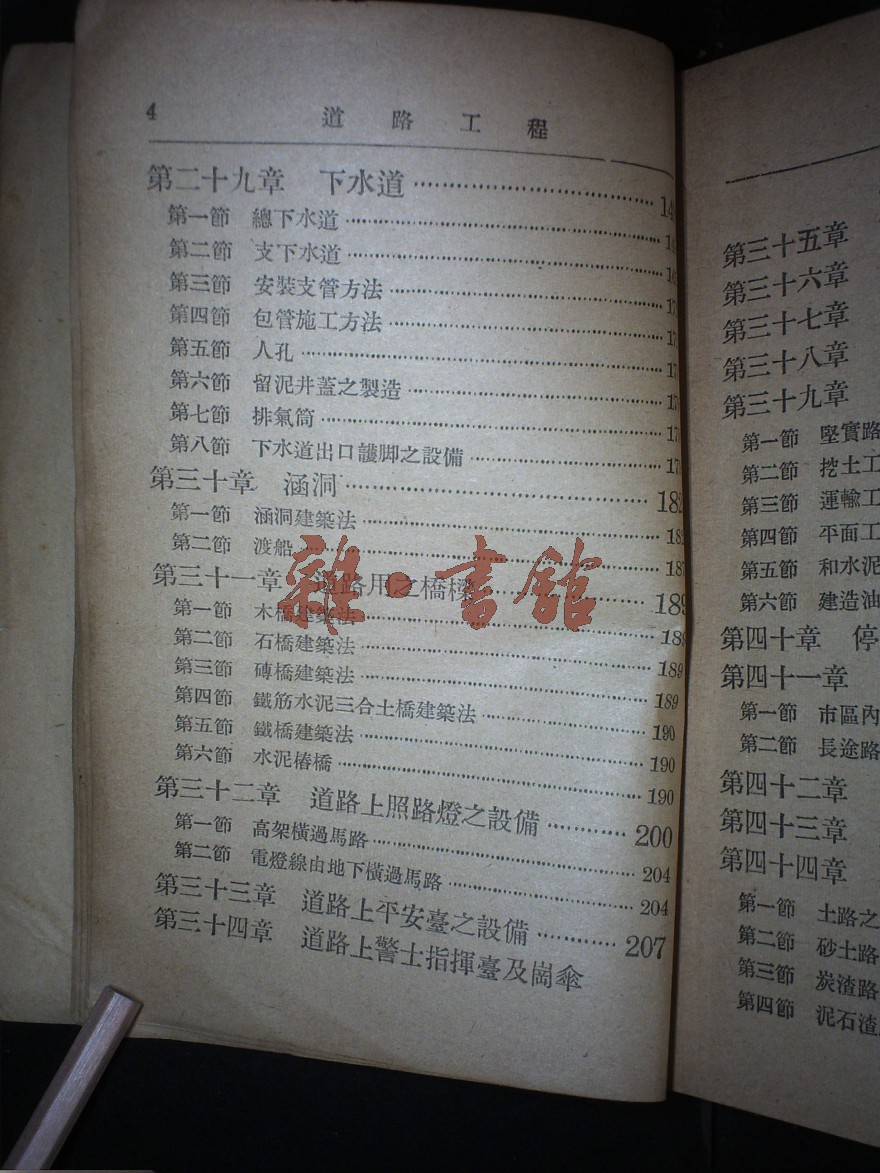 4 道路工程
第二十九章 下水道
第一節 總下水道
第二節 支下水道
第三節 安裝支管方法
第四節 包管施工方法
第五節 人孔
第六節 留泥井蓋之製造
第七節 排氣筒
第八節 下水道出口護脚之設備
第三十章 涵洞 182
第一節 涵洞建築法
第二節 渡船
第三十一章 道路用之橋樑 189
第一節 木橋建築法 189
第二節 石橋建築法 189
第三節 磚橋建築法 189
第四節 鐵筋水泥三合土橋建築法 190
第五節 鐵橋建築法 190
第六節 水泥樁橋 190
第三十二章 道路上照路燈之設備 200
第一節 高架橫過馬路 204
第二節 電燈線由地下橫過馬路 204
第三十三章 道路上平安臺之設備 207
第三十四章 道路上警士指揮臺及崗傘
雜·書館
第三十五章
第三十六章
第三十七章
第三十八章
第三十九章
第一節 堅實路
第二節 挖土工
第三節 運輸工
第四節 平面工
第五節 和水泥
第六節 建造油
第四十章 停
第四十一章
第一節 市區內
第二節 長途路
第四十二章
第四十三章
第四十四章
第一節 土路之
第二節 砂土路
第三節 炭渣路
第四節 泥石渣